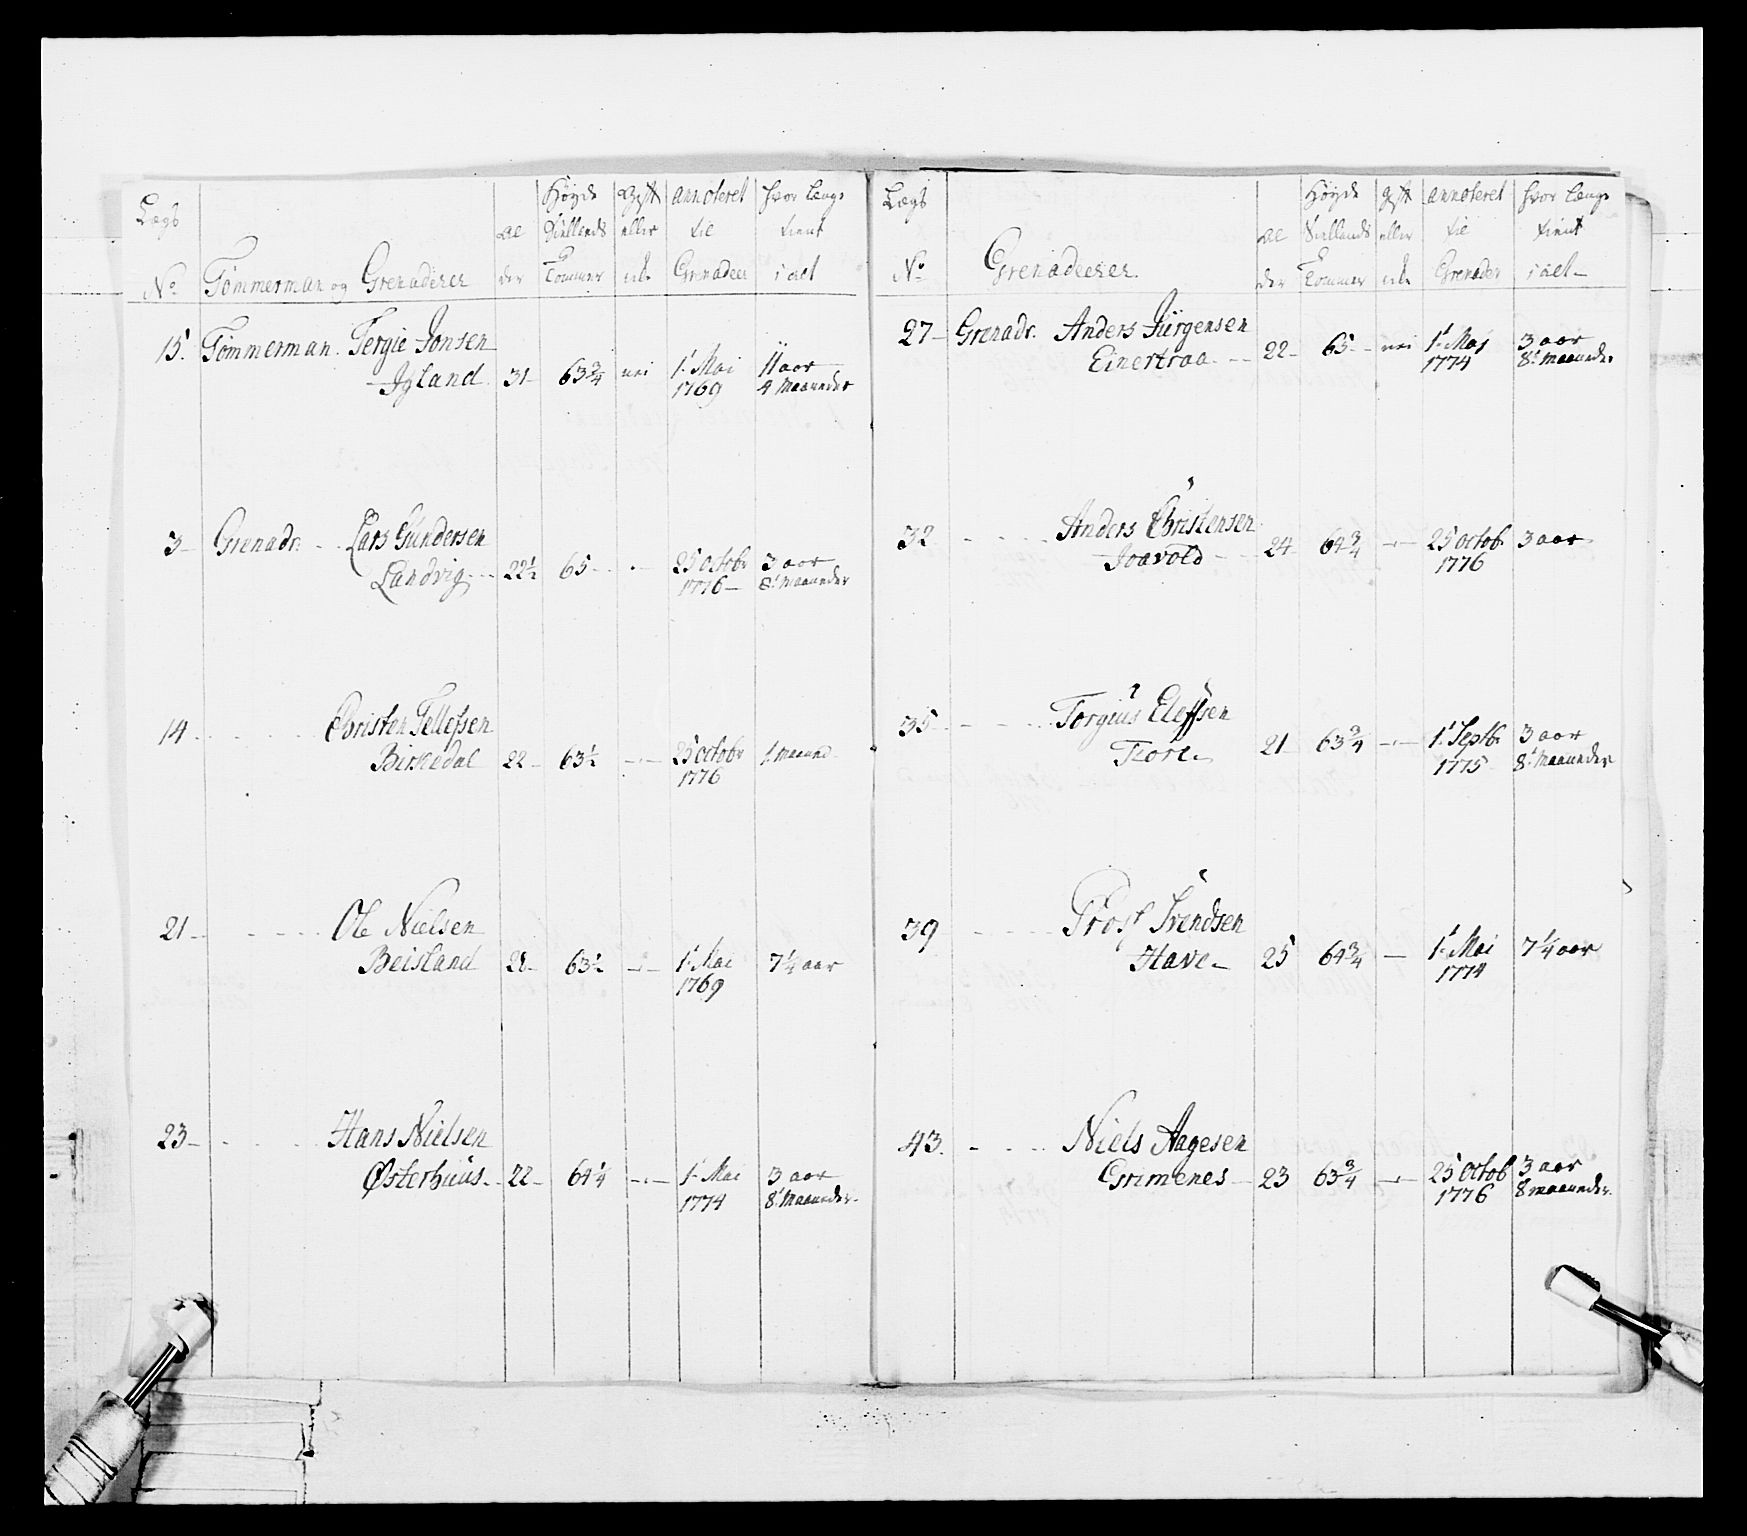 Lægs
No
Tømmerman og Grenaderer
Al
der
Høyde
Siellands
Tommer
Gift
eller
annoteret
til
Grenadeer
hvor længe
tient
i alt
15. Tømmerman. Tergie Jonsen
Igland 31 63 3/4 nei 1. Mai 11 aar
1769 4 Maaneder
3 Grenadr. Lars Gundersen
Landvig 22 1/2 65 25 octobr 3 aar
1776 8 maaneder
14 Christen Tellefsen
Birkedal 22 63 1/2 25 octobr 1 maaned
1776
21 Ole Nielsen
Beisland 28 63 1/2 1. Mai 7 1/4 aar
1769
23 Hans Nielsen
Østerhuus 22 64 1/4 1. Mai 3 aar
1774 8 Maaneder
Lægs
No
Grenadeerer.
Al
der
Høyde
Siellands
Tommer
gift
eller
annoteret
til
Grenader
hvor længe
tient
i alt
27 Grenadr. Anders Jürgensen
Einertraa 22 65 nei 1. Maj 3 aar
1774 8 maaneder
32 Anders Christensen
Joavold 24 64 3/4 25 octob 3 aar
1776
35 Torgius Elefsen
Fiore 21 63 3/4 1. Septb. 3 aar
1775 8 Maaneder
39 Trost Svendsen
Have 25 64 3/4 1. Mai 7 1/4 aar
1774
43. Niels Aagesen
Grimenes 23 63 3/4 25 octob 3 aar
1776 8 maaneder.